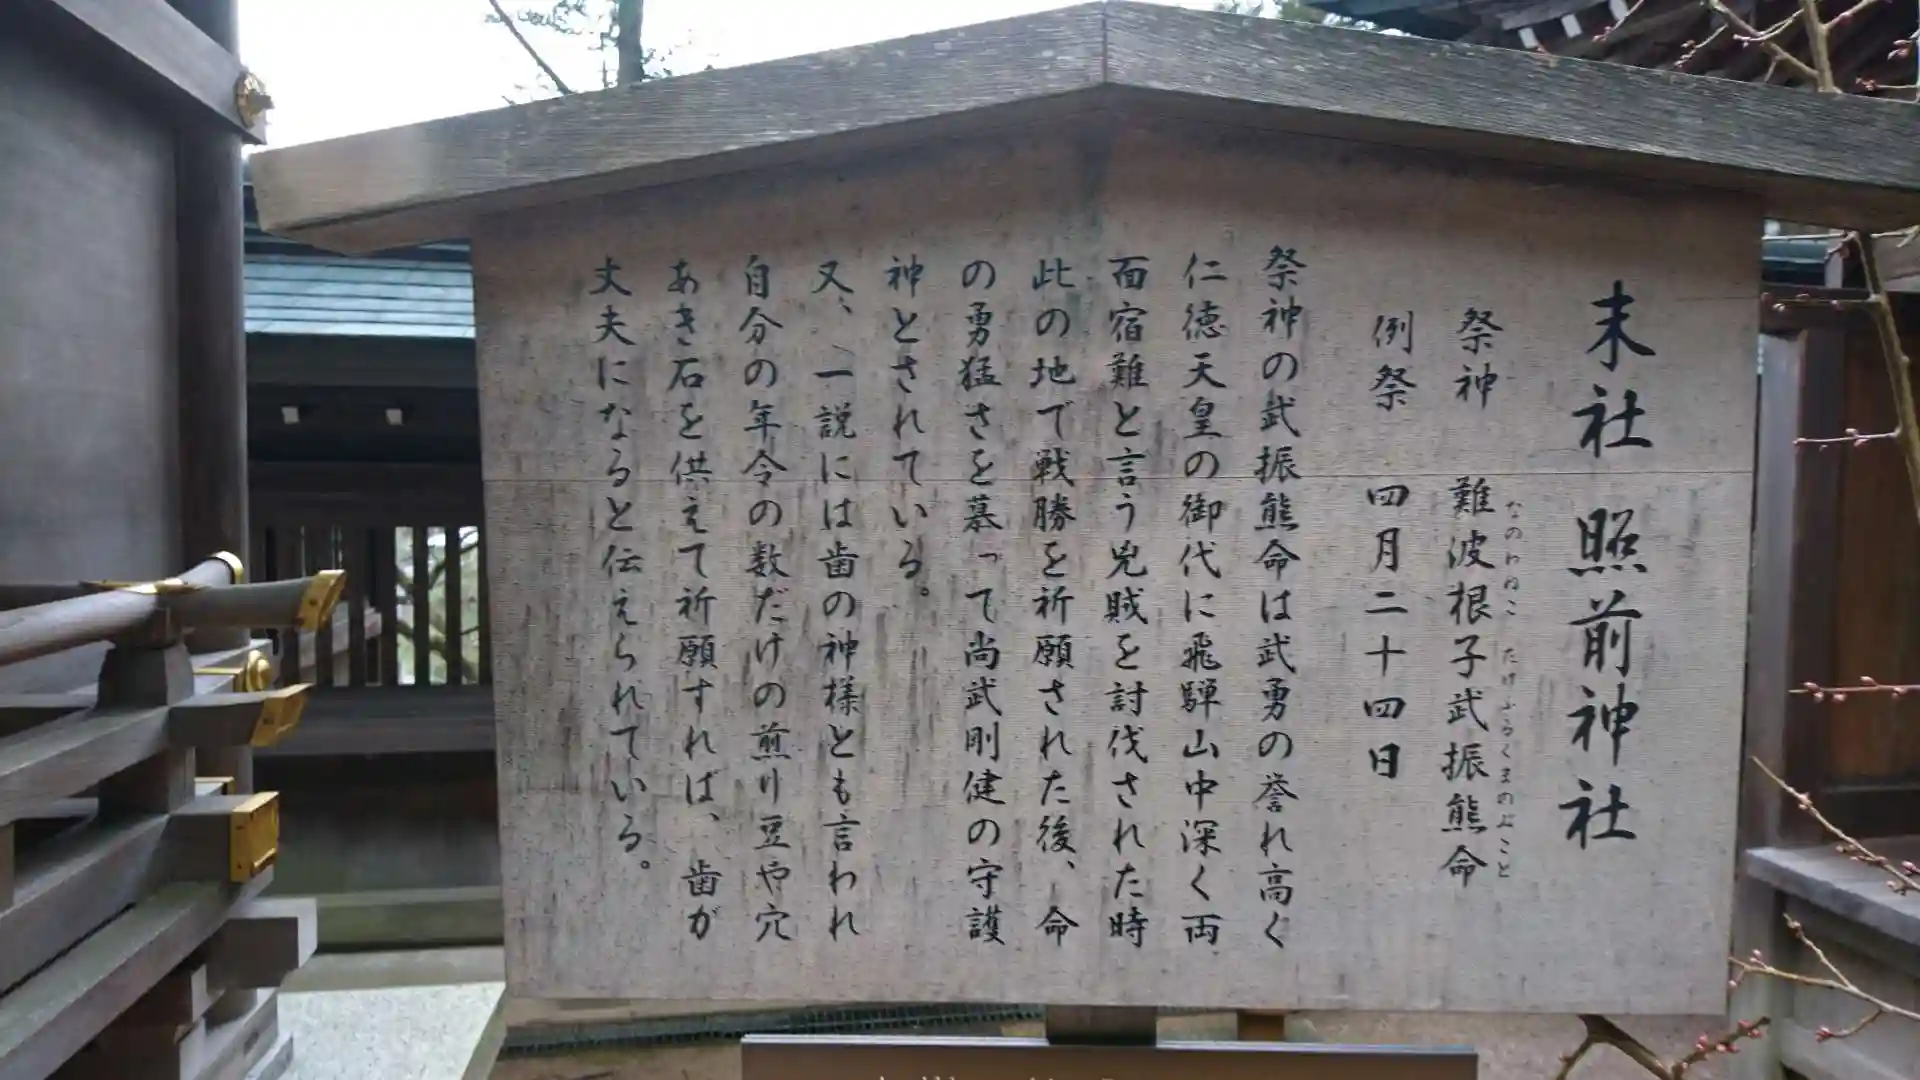 末社 照前神社
祭神 難波根子武振熊命
なのわねこ たけふるくまのみこと
例祭 四月二十四日
祭神の武振熊命は武勇の誉れ高く
仁徳天皇の御代に飛騨山中深く両
面宿難と言う兇賊を討伐された時
此の地で戦勝を祈願された後、命
の勇猛さを慕って尚武剛健の守護
神とされている。
又、一説には歯の神様とも言われ
自分の年令の数だけの煎り豆や穴
あき石を供えて祈願すれば、歯が
丈夫になると伝えられている。